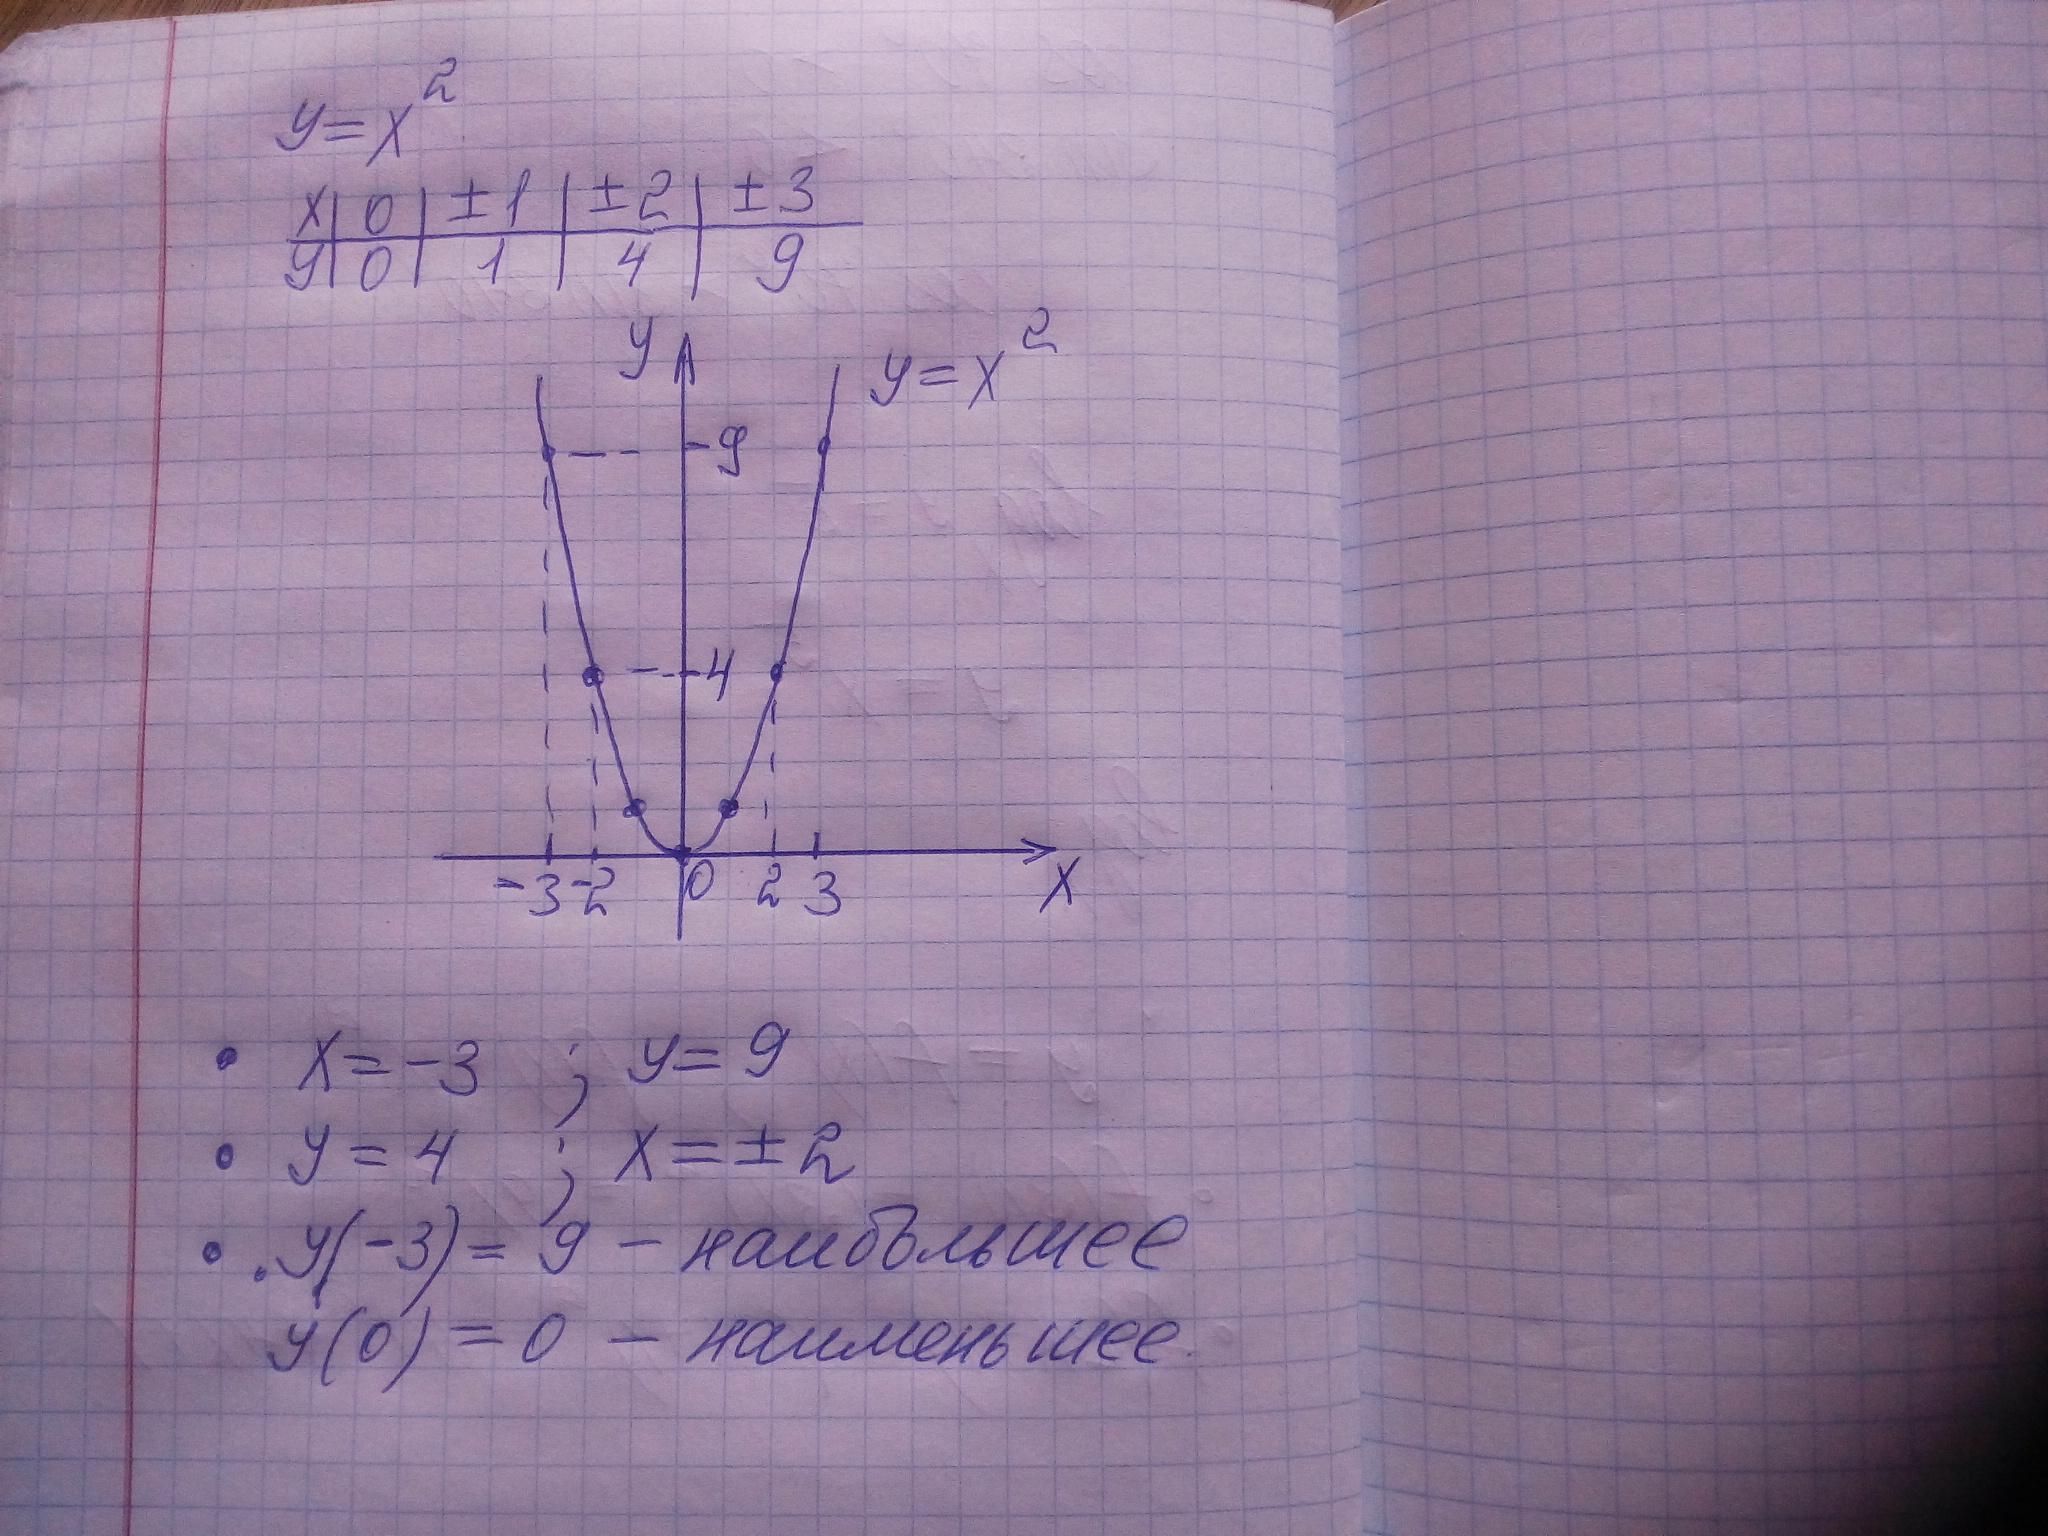 y=x²
x | 0 | ±1 | ±2 | ±3
y | 0 | 1 | 4 | 9
y
y=x²
9
4
-3 -2 0 2 3 x
• x=-3 ; y=9
• y=4 ; x=±2
• . y(-3)=9 - наибольшее
y(0)=0 - наименьшее.